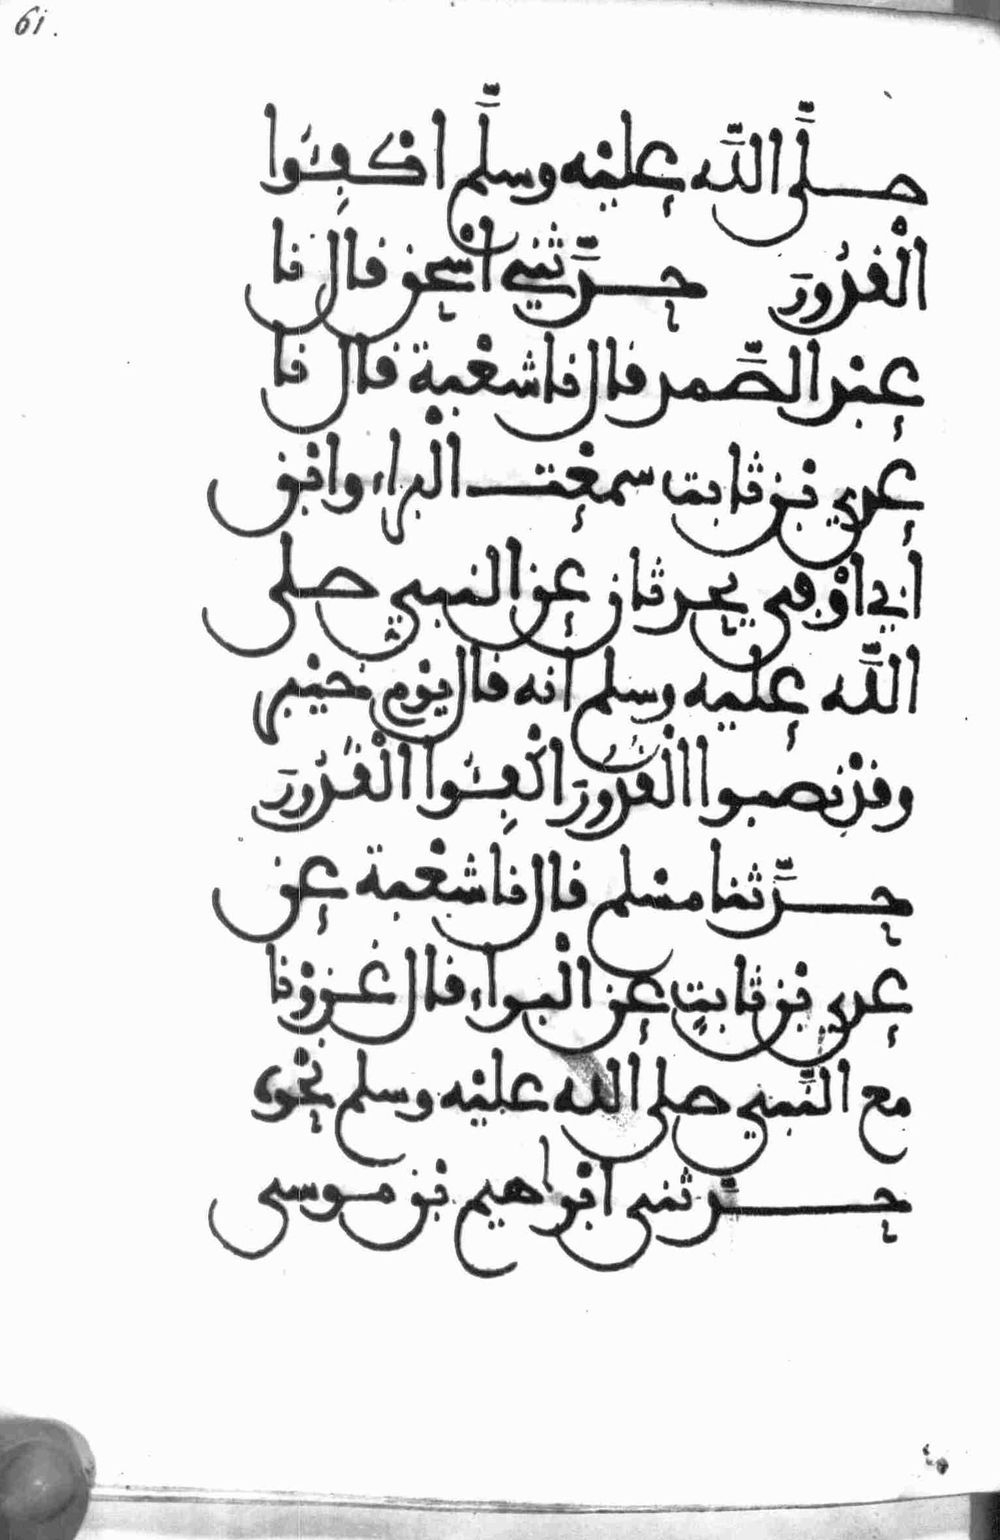 61.
صلى الله عليه وسلم اكفئوا
القدور حدثني اسحق قال نا
عبد الصمد قال نا شعبة قال نا
عدي بن ثابت سمعت البراء وابن
ابي اوفى يحدثان عن النبي صلى
الله عليه وسلم انه قال يوم خيبر
وقد نصبوا القدور اكفئوا القدور
حدثنا مسلم قال نا شعبة عن
عدي بن ثابت عن البراء قال غزونا
مع النبي صلى الله عليه وسلم نحوه
حدثني ابراهيم بن موسى